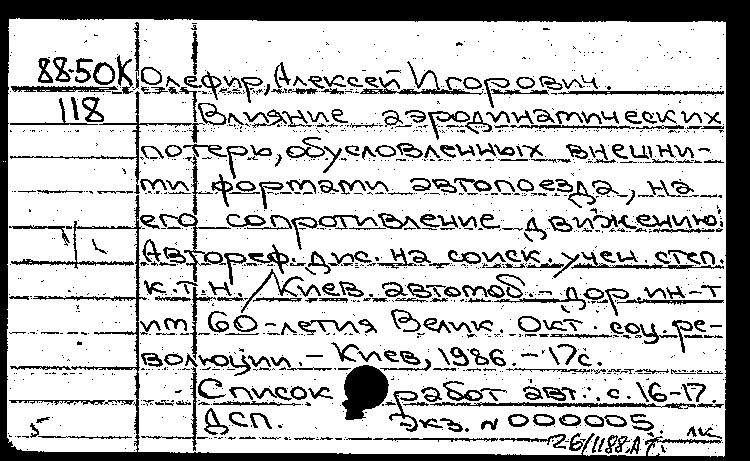 88-50К Олефир, Алексей Игорович.
118 Влияние аэродинамических
потерь, обусловленных внешни-
ми формами автопоезда, на
его сопротивление движению:
Автореф. дис. на соиск. учен. степ.
к.т.н. / Киев. автомоб.-дор. ин-т
им 60-летия Велик. Окт. соц. ре-
волюции. - Киев, 1986. - 17с.
Список работ авт.: с. 16-17.
ДСП. Экз. N 000005.
5 26/1188